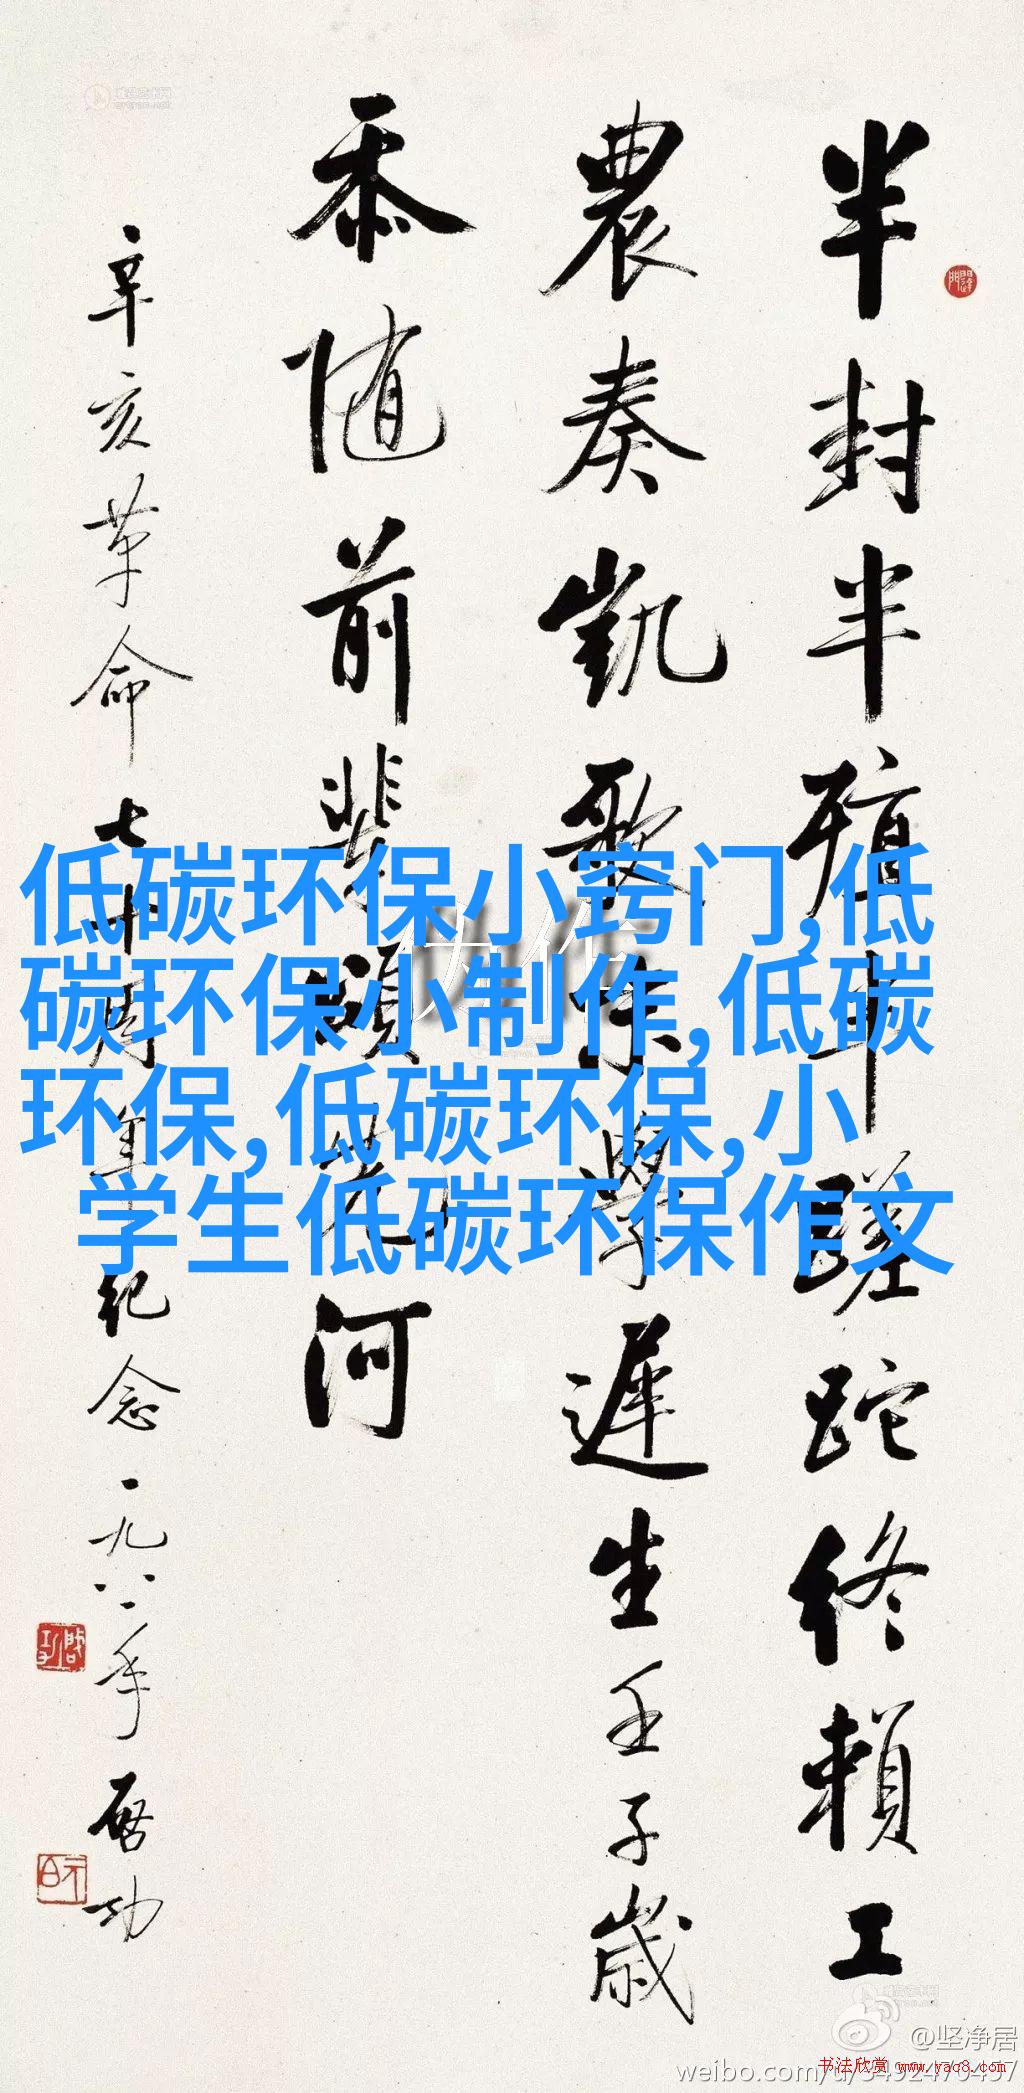 半封半殖半蹉跎终赖工
農奏凱歌
學遲生壬子歲
忝随前輩頌
河
辛亥革命七十周年纪念一九八一年啓功
低碳环保小窍门,低
碳环保小制作,低碳
环保,低碳环保,小
学生低碳环保作文
伪作
@坚净居
书法欣赏 www.yac8.com